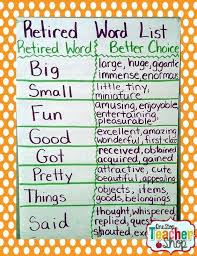 Retired Word List
Retired Word Better Choice
Big large, huge, gigantic
immense, enormous
Small little, tiny,
miniature
Fun amusing, enjoyable,
entertaining,
pleasurable
Good excellent, amazing
wonderful, first-class
Got received, obtained
acquired, gained
Pretty attractive, cute
beautiful, elegant
Things objects, items,
goods, belongings
Said thought, whispered
replied,
shouted,
Teacher
Shop